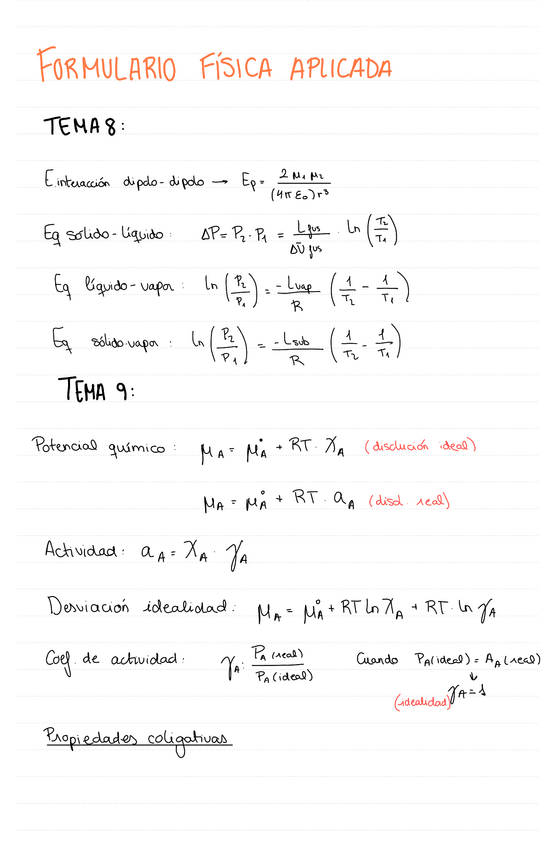 FORMULARIO FÍSICA APLICADA
TEMA 8:
E interacción dipolo-dipolo → Ep = 2 μ₁ μ₂ / (4π ε₀) r³
Eq sólido-líquido: ΔP = P₂ - P₁ = L fus / ΔV̄ fus · ln (T₂ / T₁)
Eq líquido-vapor: ln (P₂ / P₁) = -Lvap / R (1 / T₂ - 1 / T₁)
Eq sólido-vapor: ln (P₂ / P₁) = -Lsub / R (1 / T₂ - 1 / T₁)
TEMA 9:
Potencial químico: μA = μA° + RT · XA (disolución ideal)
μA = μA° + RT · aA (disol. real)
Actividad: aA = XA · γA
Desviación idealidad: μA = μA° + RT ln XA + RT · ln γA
Coef. de actividad: γA: PA (real) / PA (ideal) Cuando PA(ideal) = AA (real)
↓
(idealidad) γA = 1
Propiedades coligativas